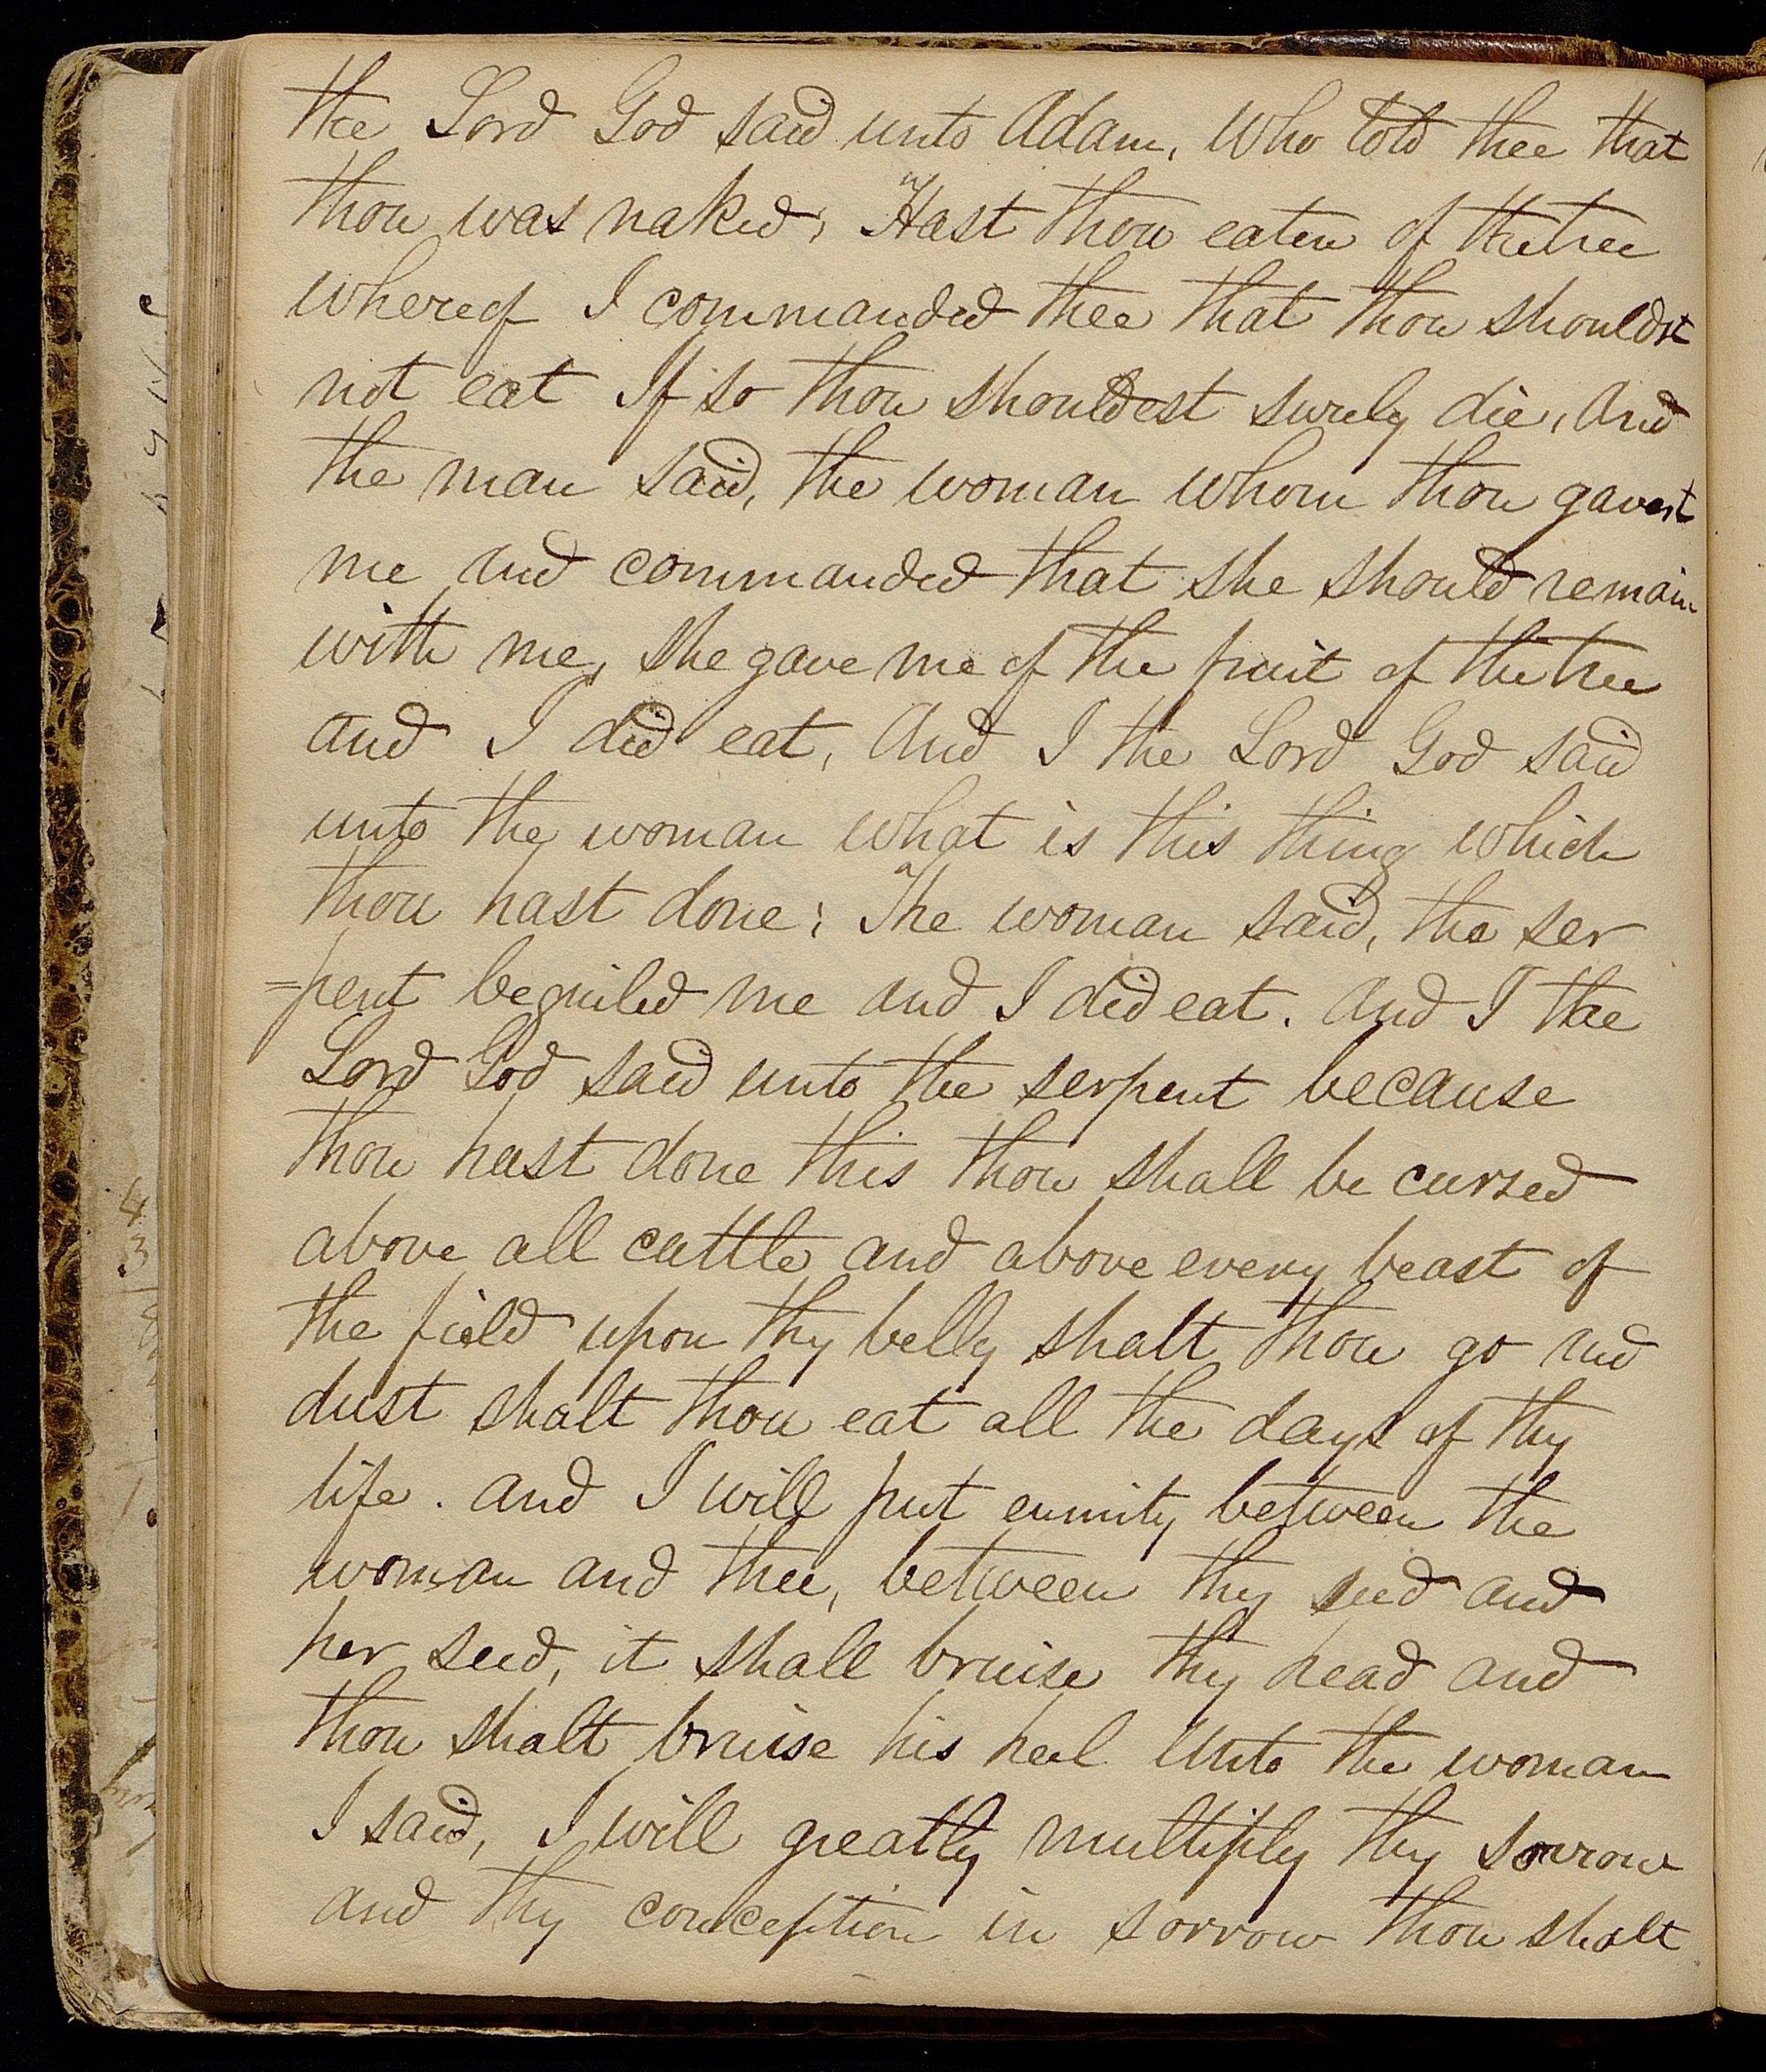 the Lord God said unto Adam, Who told thee that
thou was naked; Hast thou eaten of the tree
whereof I commanded thee that thou shouldst
not eat If so thou shouldest surely die, And
the man said, the woman whom thou gavest
me and commanded that she should remain
with me, she gave me of the fruit of the tree
and I did eat, And I the Lord God said
unto the woman what is this thing which
thou hast done; The woman said, the ser
=pent beguiled me and I did eat. and I the
Lord God said unto the serpent because
thou hast done this thou shall be cursed
above all cattle and above every beast of
the field upon thy belly shalt thou go and
dust shalt thou eat all the days of thy
life. and I will put enmity between the
woman and thee, between thy seed and
her seed, it shall bruise thy head and
thou shalt bruise his heel Unto the woman
I said, I will greatly multiply thy sorrow
and thy conception in sorrow thou shalt